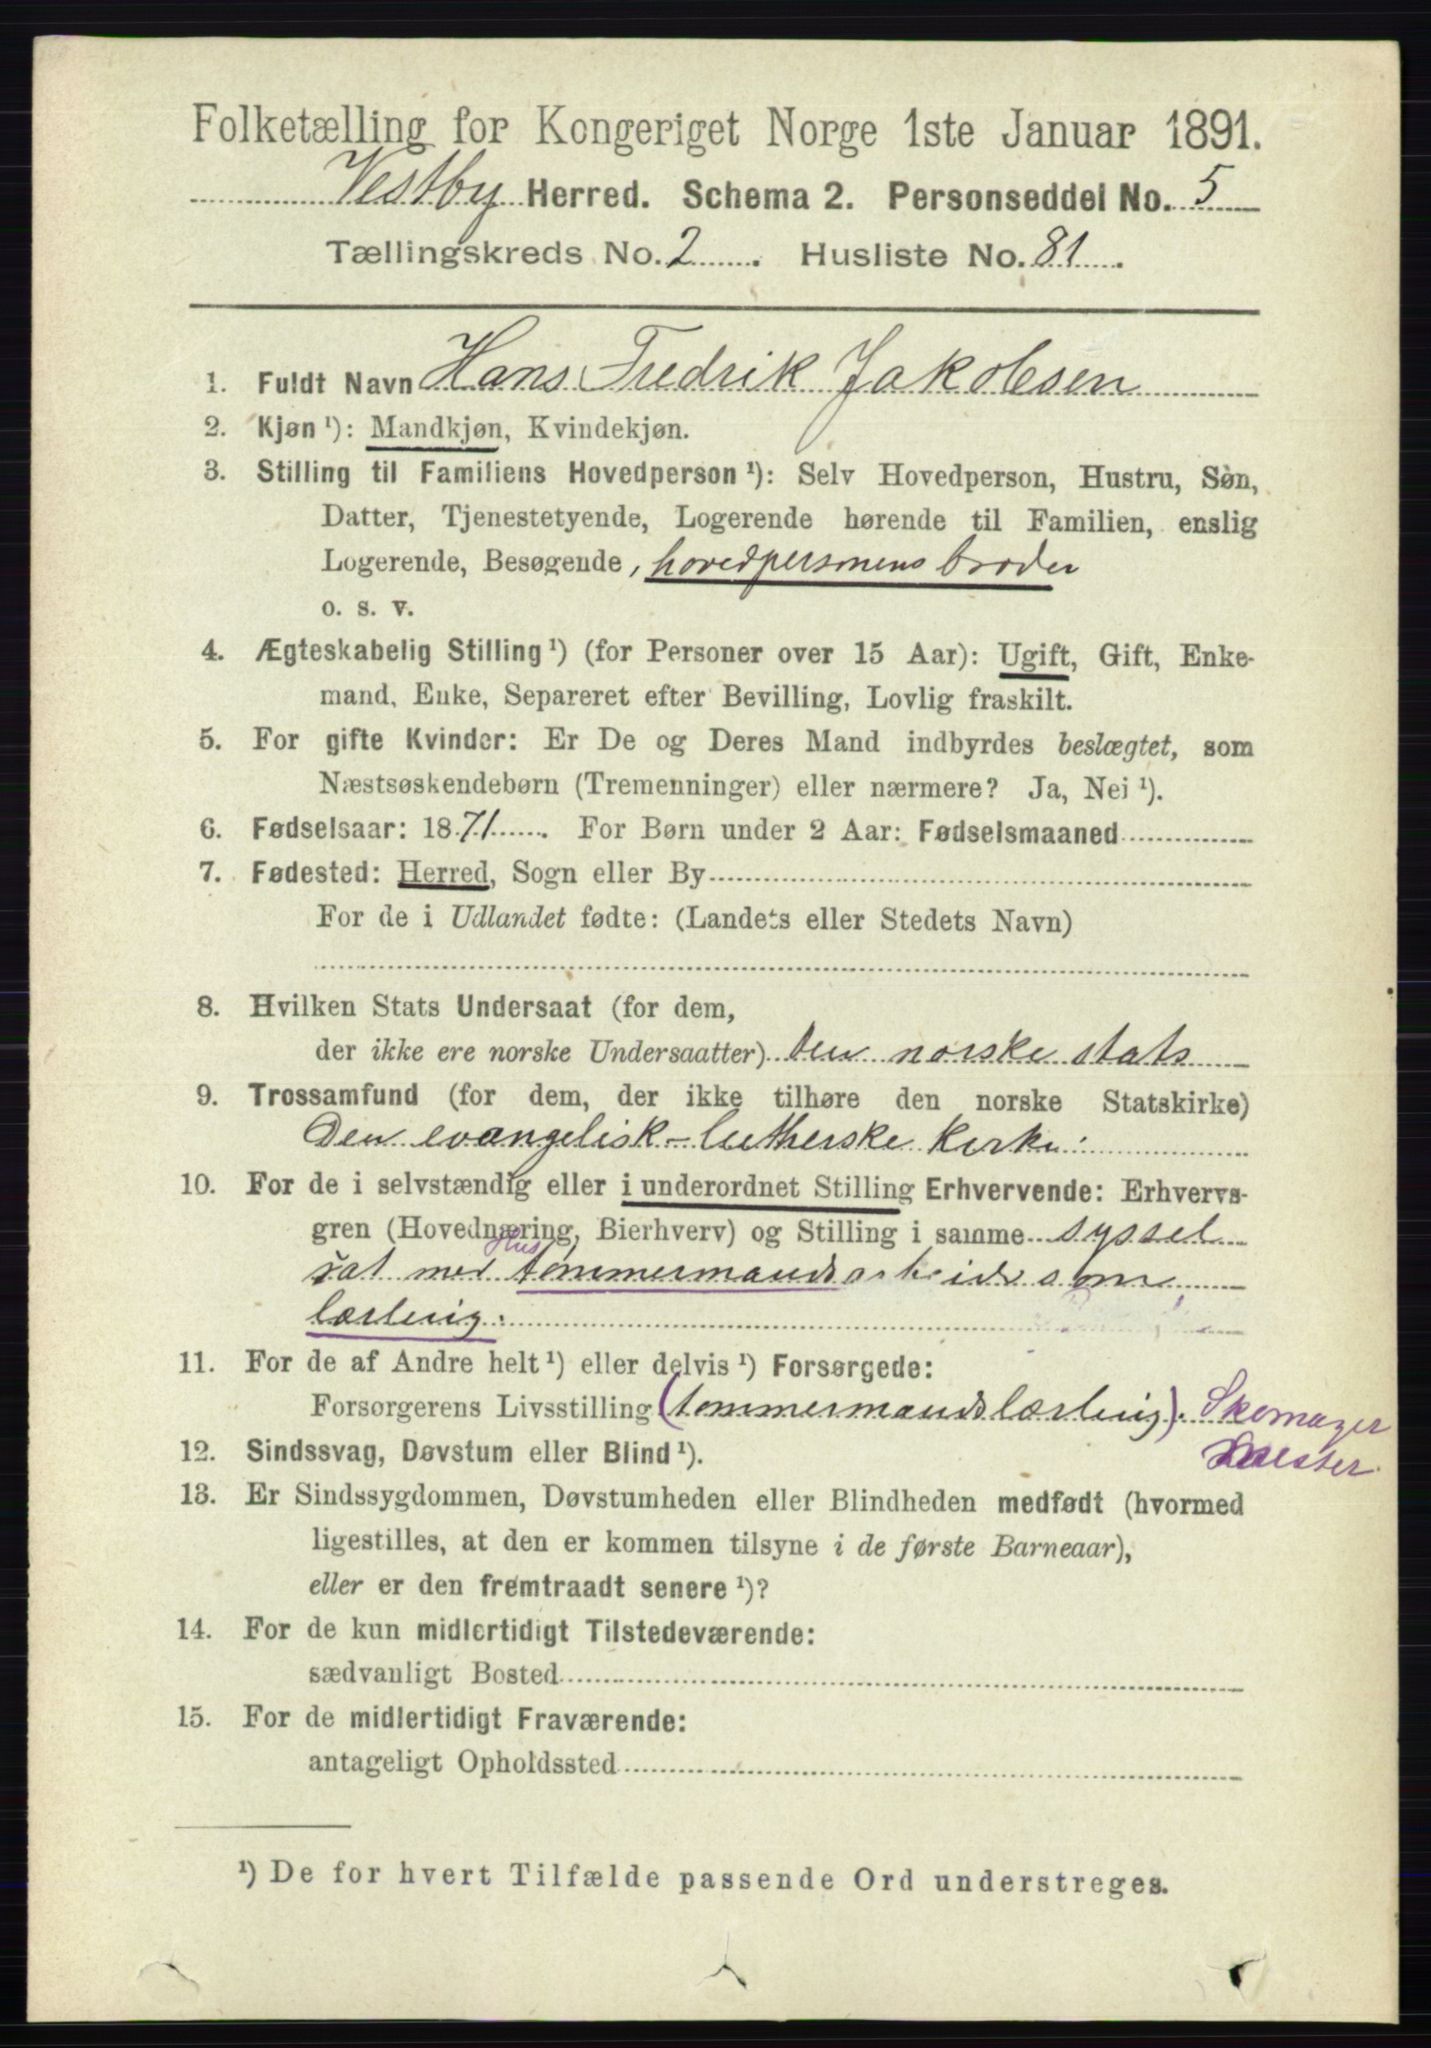 Folketælling for Kongeriget Norge 1ste Januar 1891.
Vestby Herred. Schema 2. Personseddel No. 5
Tællingskreds No. 2. Husliste No. 81.
1. Fuldt Navn Hans Fredrik Jakobsen
2. Kjøn ¹): Mandkjøn, Kvindekjøn.
3. Stilling til Familiens Hovedperson ¹): Selv Hovedperson, Hustru, Søn,
Datter, Tjenestetyende, Logerende hørende til Familien, enslig
Logerende, Besøgende, hovedpersonens broder
o. s. v.
4. Ægteskabelig Stilling ¹) (for Personer over 15 Aar): Ugift, Gift, Enke-
mand, Enke, Separeret efter Bevilling, Lovlig fraskilt.
5. For gifte Kvinder: Er De og Deres Mand indbyrdes beslægtet, som
Næstsøskendebørn (Tremenninger) eller nærmere? Ja, Nei ¹).
6. Fødselsaar: 1871. For Børn under 2 Aar: Fødselsmaaned
7. Fødested: Herred, Sogn eller By
For de i Udlandet fødte: (Landets eller Stedets Navn)
8. Hvilken Stats Undersaat (for dem,
der ikke ere norske Undersaatter) den norske stats
9. Trossamfund (for dem, der ikke tilhøre den norske Statskirke)
Den evangelisk-lutherske kirke.
10. For de i selvstændig eller i underordnet Stilling Erhvervende: Erhvervs-
gren (Hovednæring, Bierhverv) og Stilling i samme syssel
sat med Hus tømmermandsarbeide som
lærling.
11. For de af Andre helt ¹) eller delvis ¹) Forsørgede:
Forsørgerens Livsstilling (tømmermandslærling). Skomager
Mester
12. Sindssvag, Døvstum eller Blind ¹).
13. Er Sindssygdommen, Døvstumheden eller Blindheden medfødt (hvormed
ligestilles, at den er kommen tilsyne i de første Barneaar),
eller er den fremtraadt senere ¹)?
14. For de kun midlertidigt Tilstedeværende:
sædvanligt Bosted
15. For de midlertidigt Fraværende:
antageligt Opholdssted
¹) De for hvert Tilfælde passende Ord understreges.